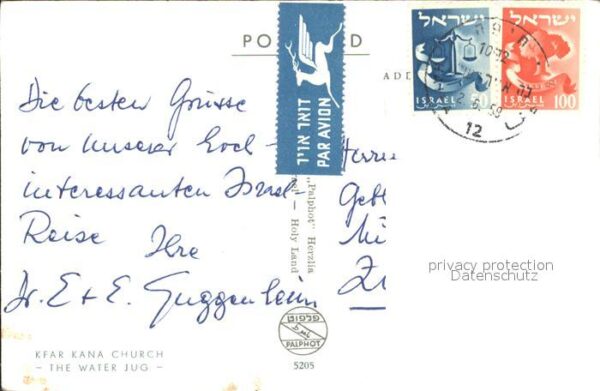 PO D
ADD
ישראל
ישראל
ISRAEL 60
ISRAEL 100
12
דואר אויר
PAR AVION
Die besten Grüsse
von unserer hoch-
interessanten Israel-
Reise Ihre
Dr. E + E. Guggenheim
Herrn
Gebr
KFAR KANA CHURCH
- THE WATER JUG -
"Palphot" Herzlia
Israel — Holy Land
פלפוט
PALPHOT
5205
privacy protection
Datenschutz